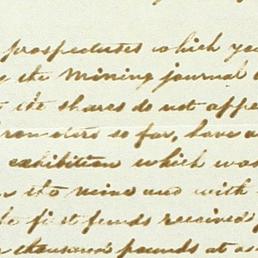 prospectuses which
the Mining journal
the shares do not
so far, have
exhibition which was
the mine and with
first funds received
thousand pounds at